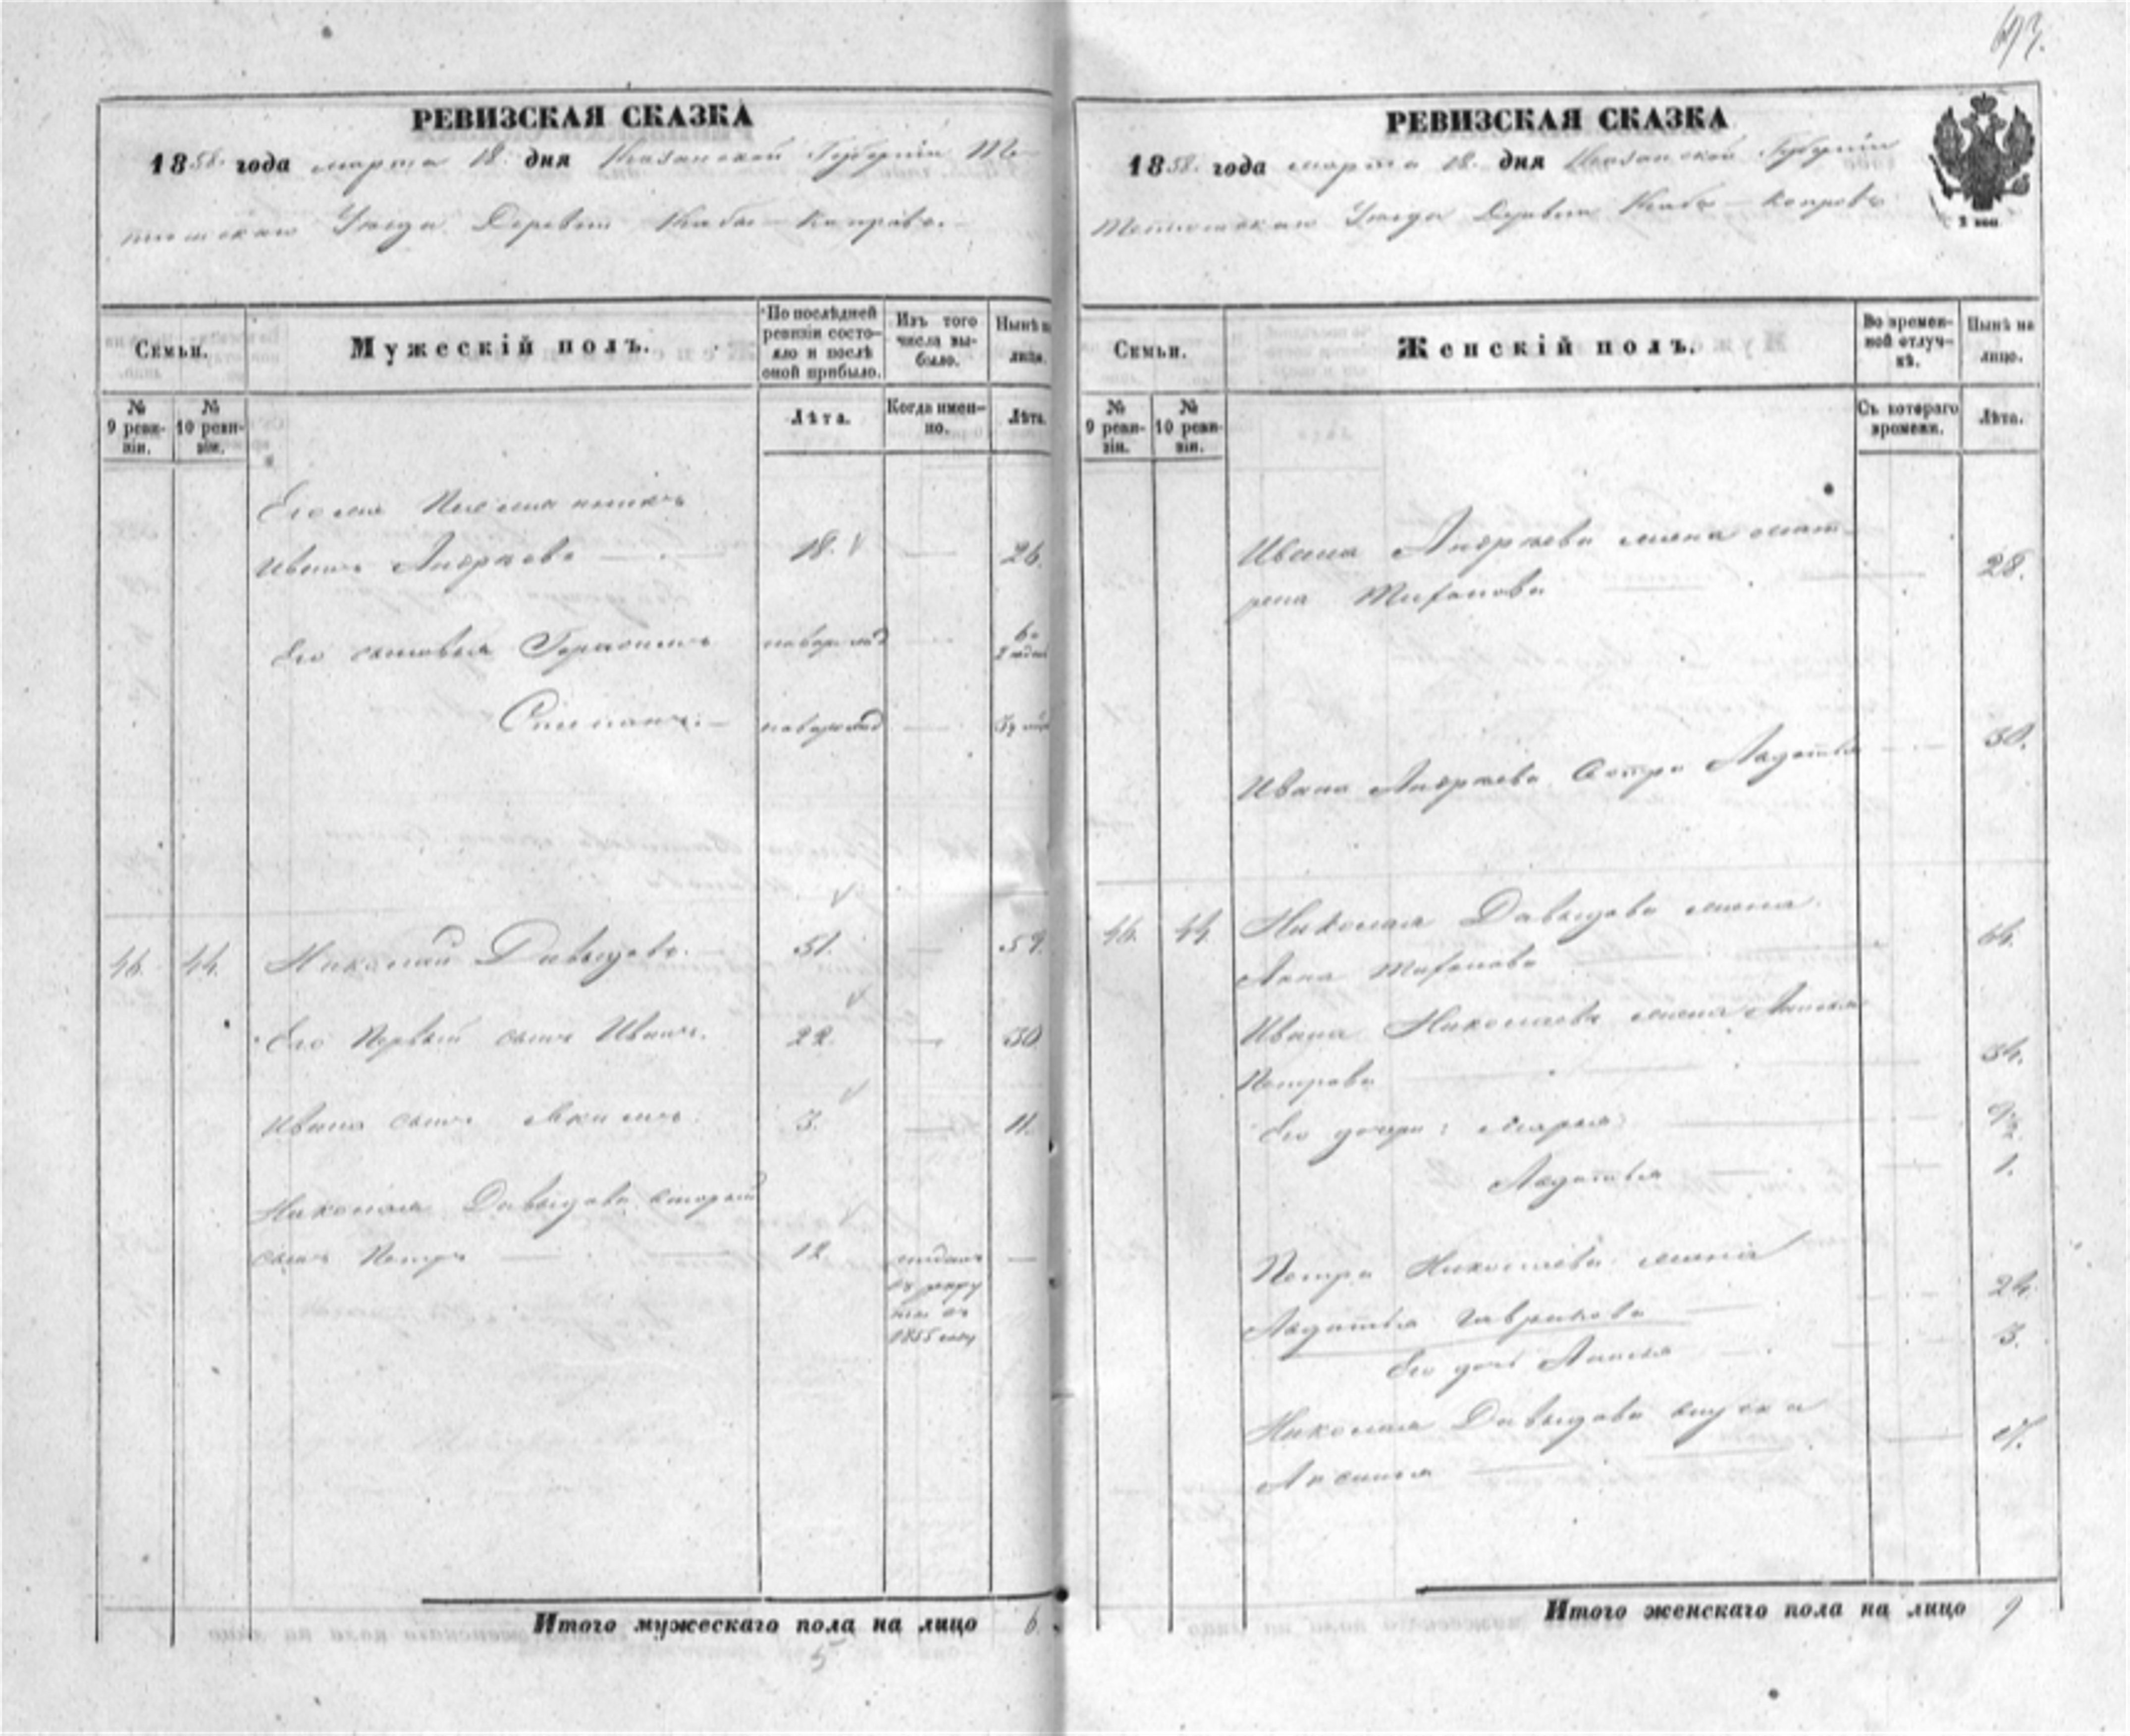 693.
РЕВИЗСКАЯ СКАЗКА
1858. года марта 18. дня Казанской Губернiи Те-
тюшскаго Уѣзда Деревни
Семьи.
Мужескiй полъ.
По послѣдней ревизiи состояло и послѣ оной прибыло.
Изъ того числа выбыло.
Нынѣ на лицо.
№ 9 ревизiи.
№ 10 ревизiи.
Лѣта.
Когда именно.
Лѣта.
Племянникъ
Иванъ Андреевъ 18. 26.
Его сыновья Герасимъ новорожд
Степанъ. новорожд
46. 44. Николай Давыдовъ. 51. 59.
Его Первый сынъ Иванъ. 22. 30.
Ивана сынъ Акимъ. 3. 11.
Николая Давыдова второй
сынъ Петръ 12. отданъ
въ рекру
ты въ
1855 году
Итого мужескаго пола на лицо 6.
5
РЕВИЗСКАЯ СКАЗКА
1858. года марта 18. дня Казанской Губернiи
Тетюшскаго Уѣзда Деревни
2 коп
Семьи.
Женскiй полъ.
Во временной отлучкѣ.
Нынѣ на лицо.
№ 9 ревизiи.
№ 10 ревизiи.
Съ котораго времени.
Лѣта.
Ивана Андреева жена Мат-
рена Тифонова 28.
Ивана Андреева сестра Агафья 30.
46. 44. Николая Давыдова жена
Анна Тифонова 64.
Ивана Николаева жена
Петрова 34.
Его дочери: Марья
Агафья 1.
Петра Николаева жена
Агафья Гаврилова 24.
Его дочь 3.
Николая Давыдова внучка
Аксинья 17.
Итого женскаго пола на лицо 9